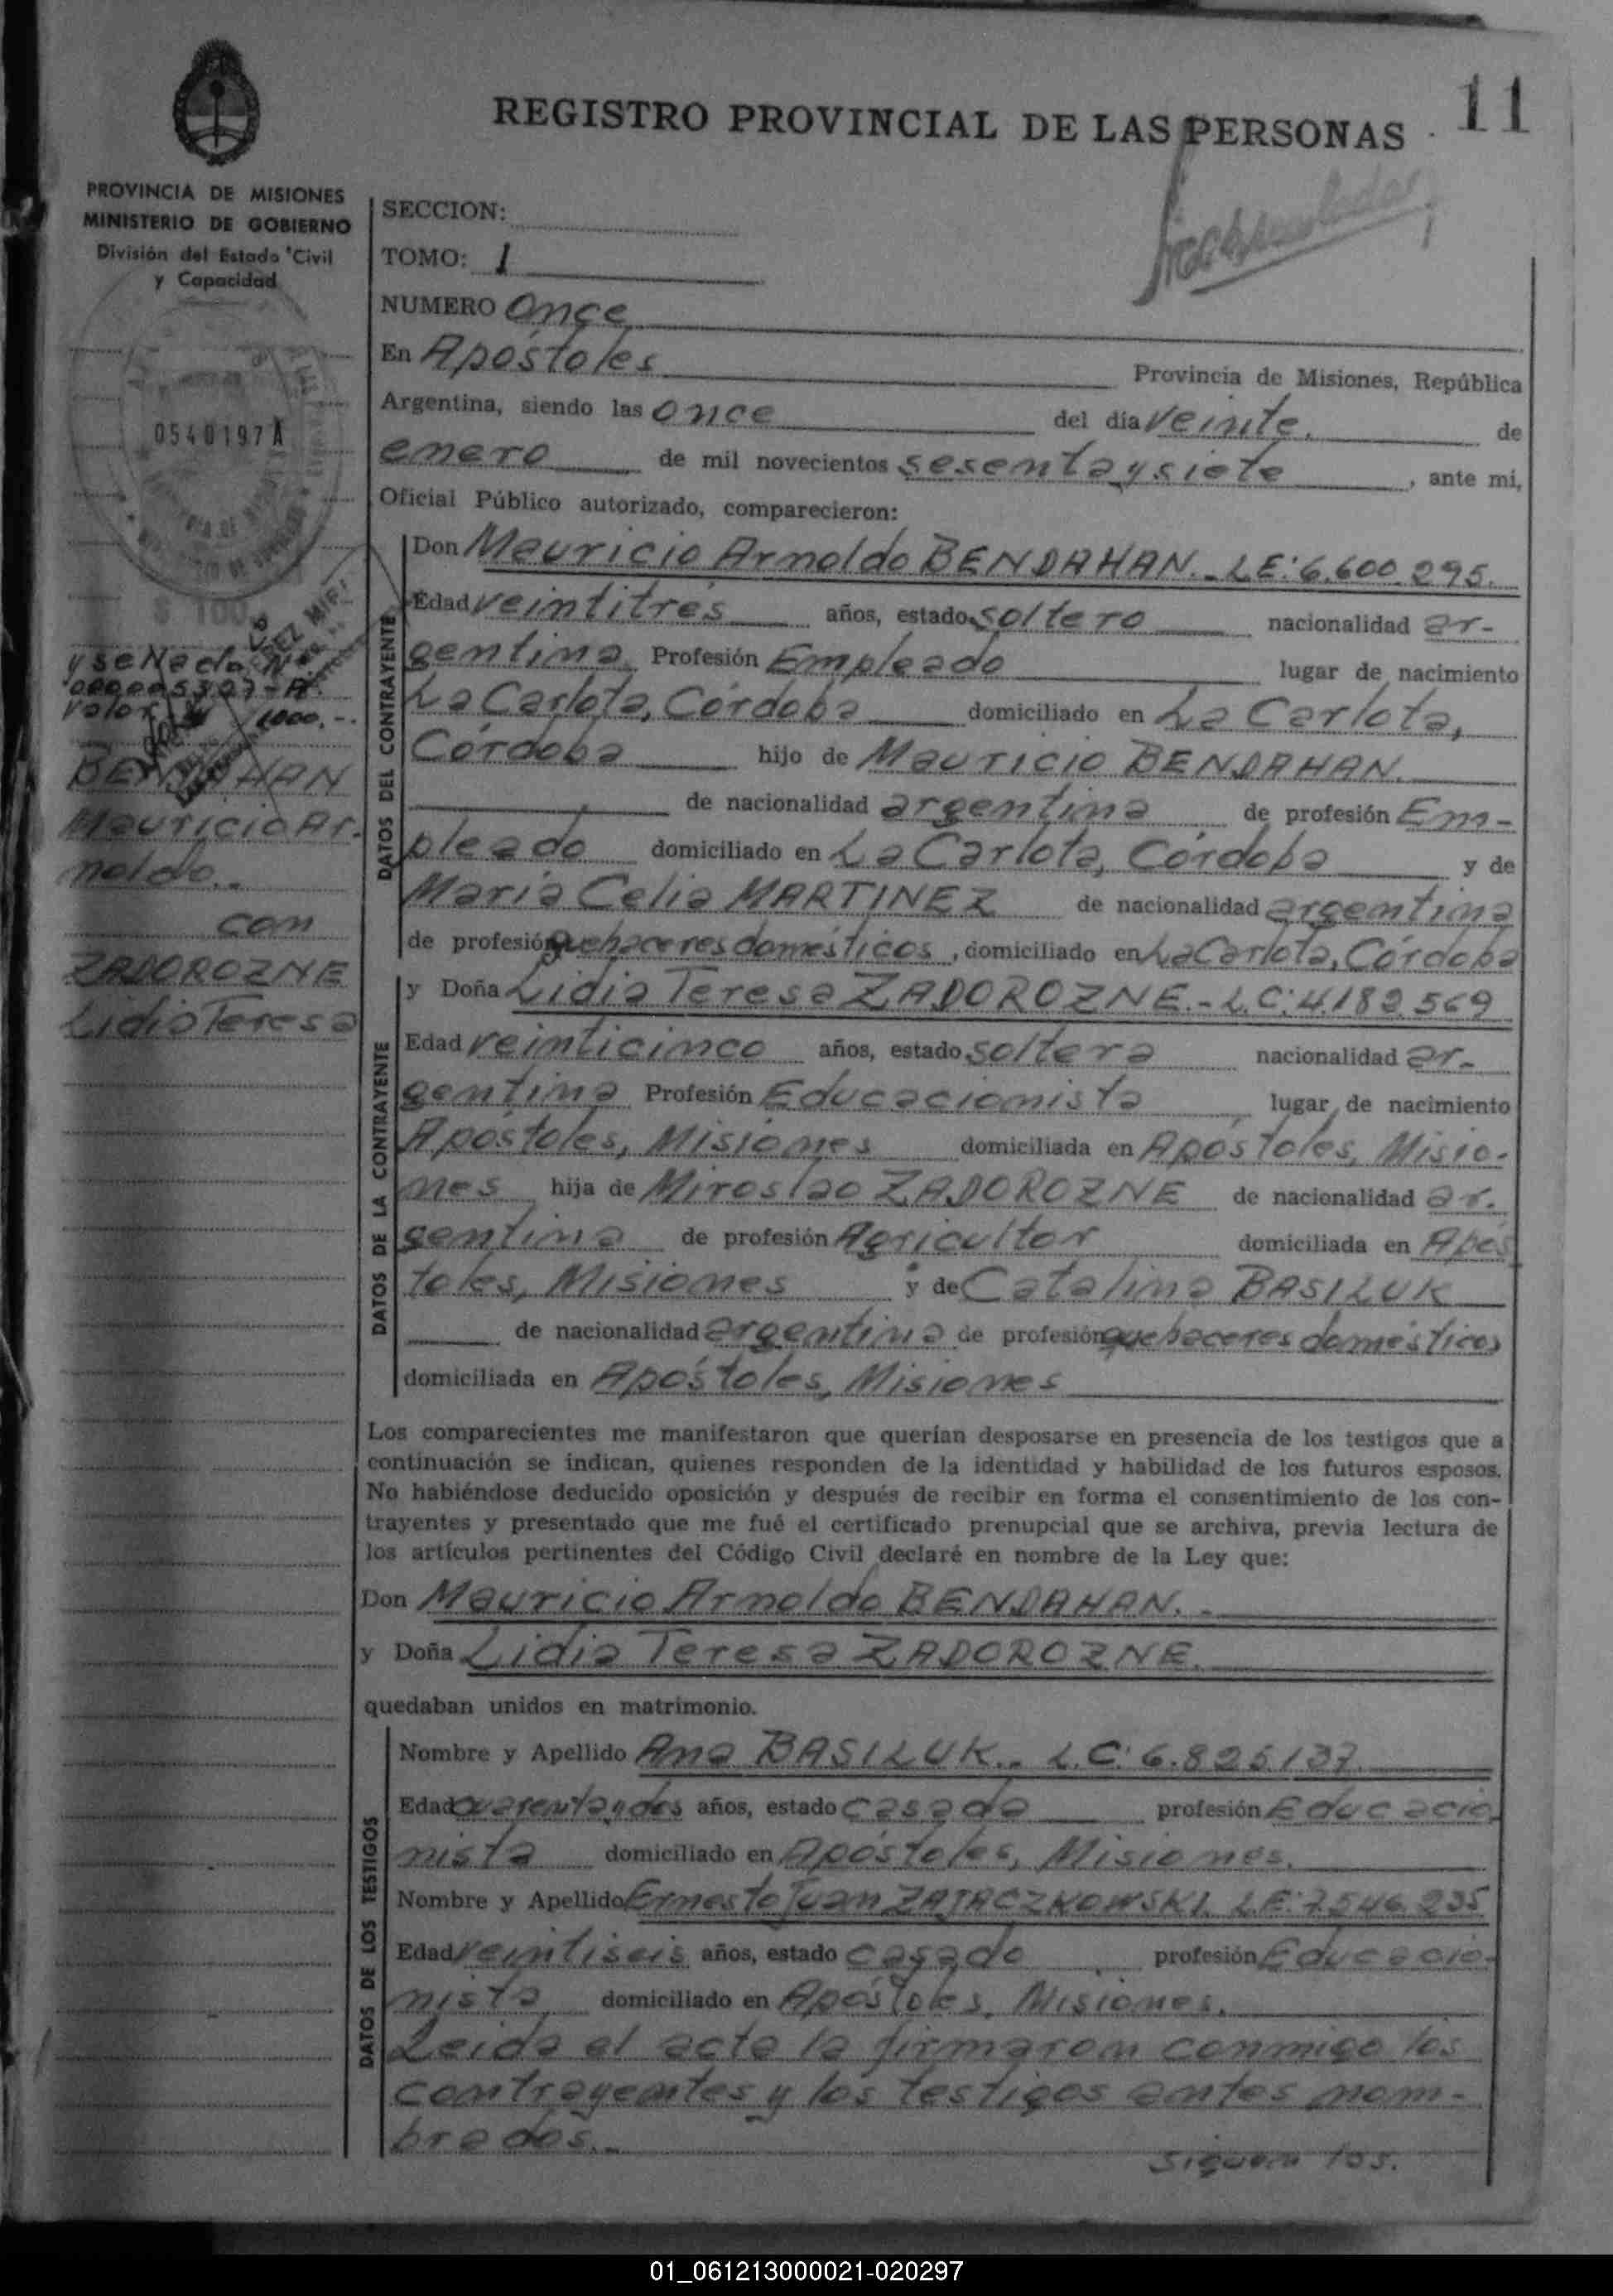 11
REGISTRO PROVINCIAL DE LAS PERSONAS
PROVINCIA DE MISIONES
MINISTERIO DE GOBIERNO
División del Estado Civil
y Capacidad
0540197A
$ 100
valor 1000.-
BENDAHAN
Mauricio Ar-
noldo.
con
ZADOROZNE
Lidia Teresa
SECCION:
TOMO: 1
NUMERO Once
En Apóstoles Provincia de Misiones, República
Argentina, siendo las once del día veinte. de
enero de mil novecientos sesentaysiete, ante mi,
Oficial Público autorizado, comparecieron:
DATOS DEL CONTRAYENTE
Don Mauricio Arnoldo BENDAHAN.- LE: 6.600.295.
Edad veintitrés años, estado soltero nacionalidad ar-
gentina Profesión Empleado lugar de nacimiento
La Carlota, Córdoba domiciliado en La Carlota,
Córdoba hijo de Mauricio BENDAHAN.
de nacionalidad argentina de profesión Em-
pleado domiciliado en La Carlota, Córdoba y de
María Celia MARTINEZ de nacionalidad argentina
de profesión quehaceres domésticos, domiciliado en La Carlota, Córdoba
DATOS DE LA CONTRAYENTE
y Doña Lidia Teresa ZADOROZNE.- L.C: 4.182.569
Edad veinticinco años, estado soltera nacionalidad ar-
gentina Profesión Educacionista lugar de nacimiento
Apóstoles, Misiones domiciliada en Apóstoles, Misio-
nes hija de Miroslao ZADOROZNE de nacionalidad ar-
gentina de profesión Agricultor domiciliada en Após
toles, Misiones y de Catalina BASILUK
de nacionalidad argentina de profesión quehaceres domésticos
domiciliada en Apóstoles, Misiones
Los comparecientes me manifestaron que querían desposarse en presencia de los testigos que a
continuación se indican, quienes responden de la identidad y habilidad de los futuros esposos.
No habiéndose deducido oposición y después de recibir en forma el consentimiento de los con-
trayentes y presentado que me fué el certificado prenupcial que se archiva, previa lectura de
los artículos pertinentes del Código Civil declaré en nombre de la Ley que:
Don Mauricio Arnoldo BENDAHAN.-
y Doña Lidia Teresa ZADOROZNE.
quedaban unidos en matrimonio.
DATOS DE LOS TESTIGOS
Nombre y Apellido Ana BASILUK.. L.C: 6.825.137.
Edad cuarentaydos años, estado casada profesión Educacio
nista domiciliado en Apóstoles, Misiones.
Nombre y Apellido Ernesto Juan ZAJACZKOWSKI. L.E: 7.546.235
Edad veintiseis años, estado casado profesión Educacio-
nista domiciliado en Apóstoles, Misiones.
Leida el acta la firmaron conmigo los
contrayentes y los testigos antes nom-
brados..
siguen las.
01_061213000021-020297